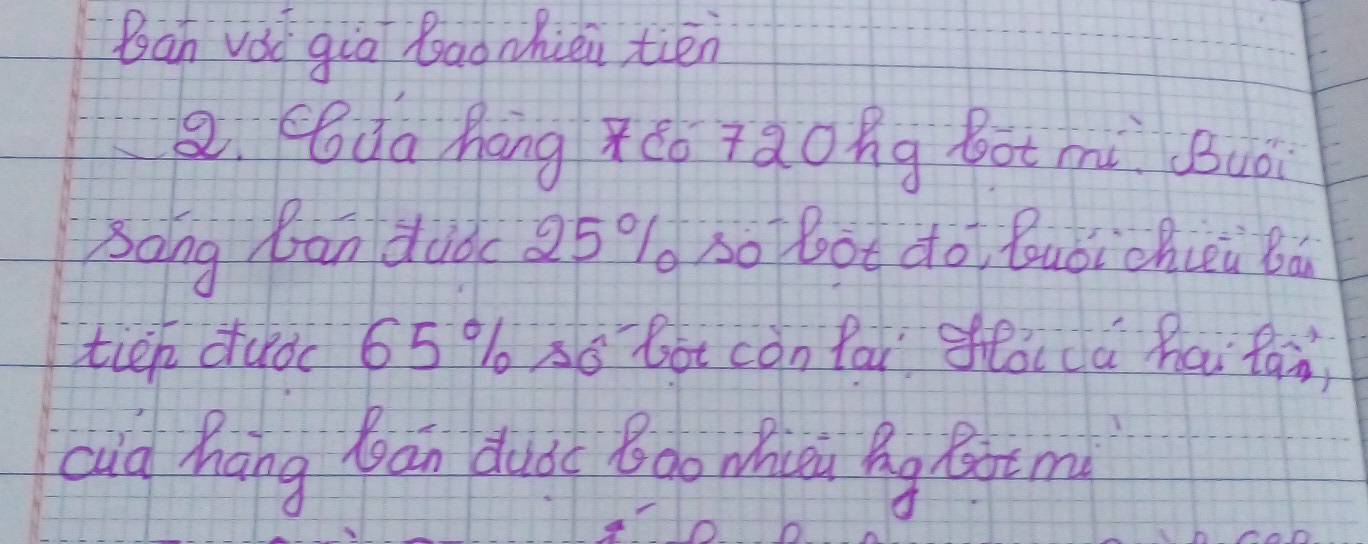 bán với giá bao nhiêu tiền
2. Cửa hàng có 720kg bột mì. Buổi
sáng bán được 25% số bột đó, buổi chiều bán
tiếp được 65% số bột còn lại. Hỏi cả hai lần,
cửa hàng bán được bao nhiêu kg bột mì